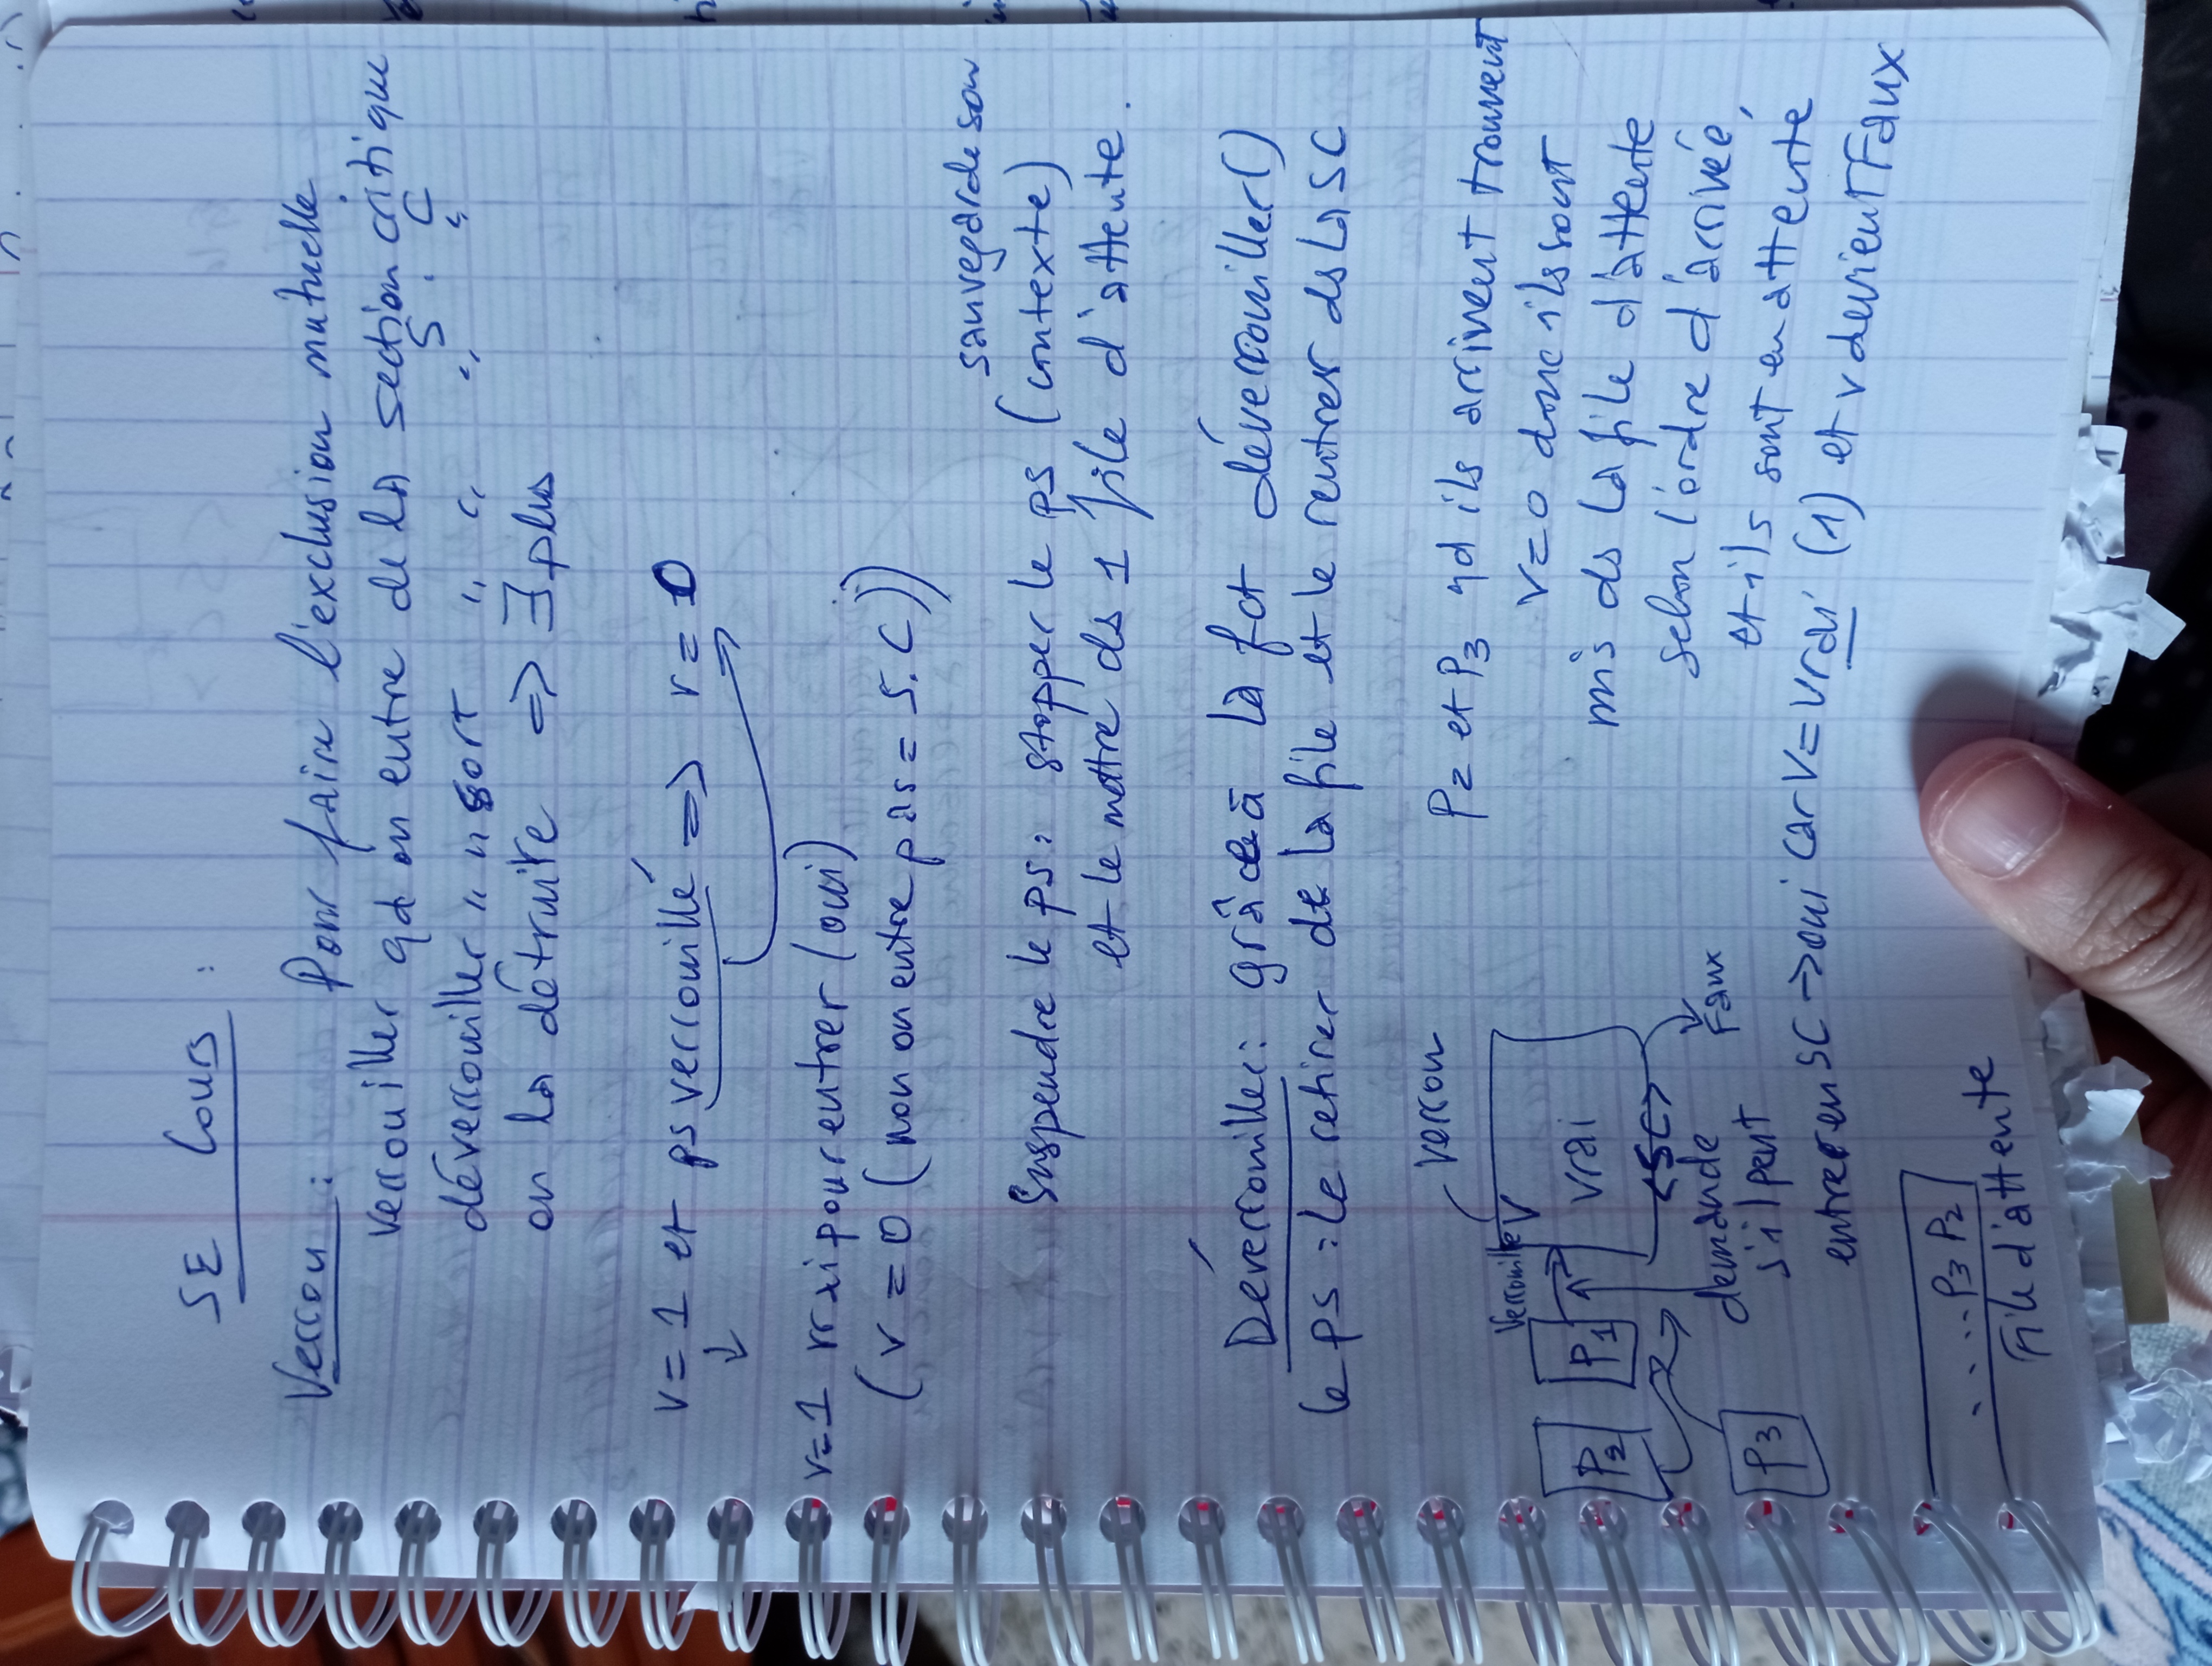 SE Cours :
Verrou : Pour faire l'exclusion mutuelle
verrouiller qd on entre de la section critique
S . C
déverrouiller " " sort " " " "
on la détruite => ∃ plus
v = 1 et ps verrouillé => v = 0
↓
v=1 vrai pour entrer (oui)
(v = 0 (non on entre pas = S.C))
sauvegarde son
Suspendre le ps : stopper le ps (contexte)
et le mettre ds 1 file d'attente.
Déverrouiller : grâce à la fct déverrouiller()
le ps : le retirer de la file et le rentrer ds la SC
verrou
Verrouille V
P2 P1 vrai
<SC>
P3
demande
s'il peut
Faux
P2 et P3 qd ils arrivent trouvent
V=0 donc ils sont
mis ds la file d'attente
selon l'ordre d'arrivée,
et ils sont en attente
entrer en SC → oui car V = Vrai (1) et v devient Faux
..... P3 P2
File d'attente